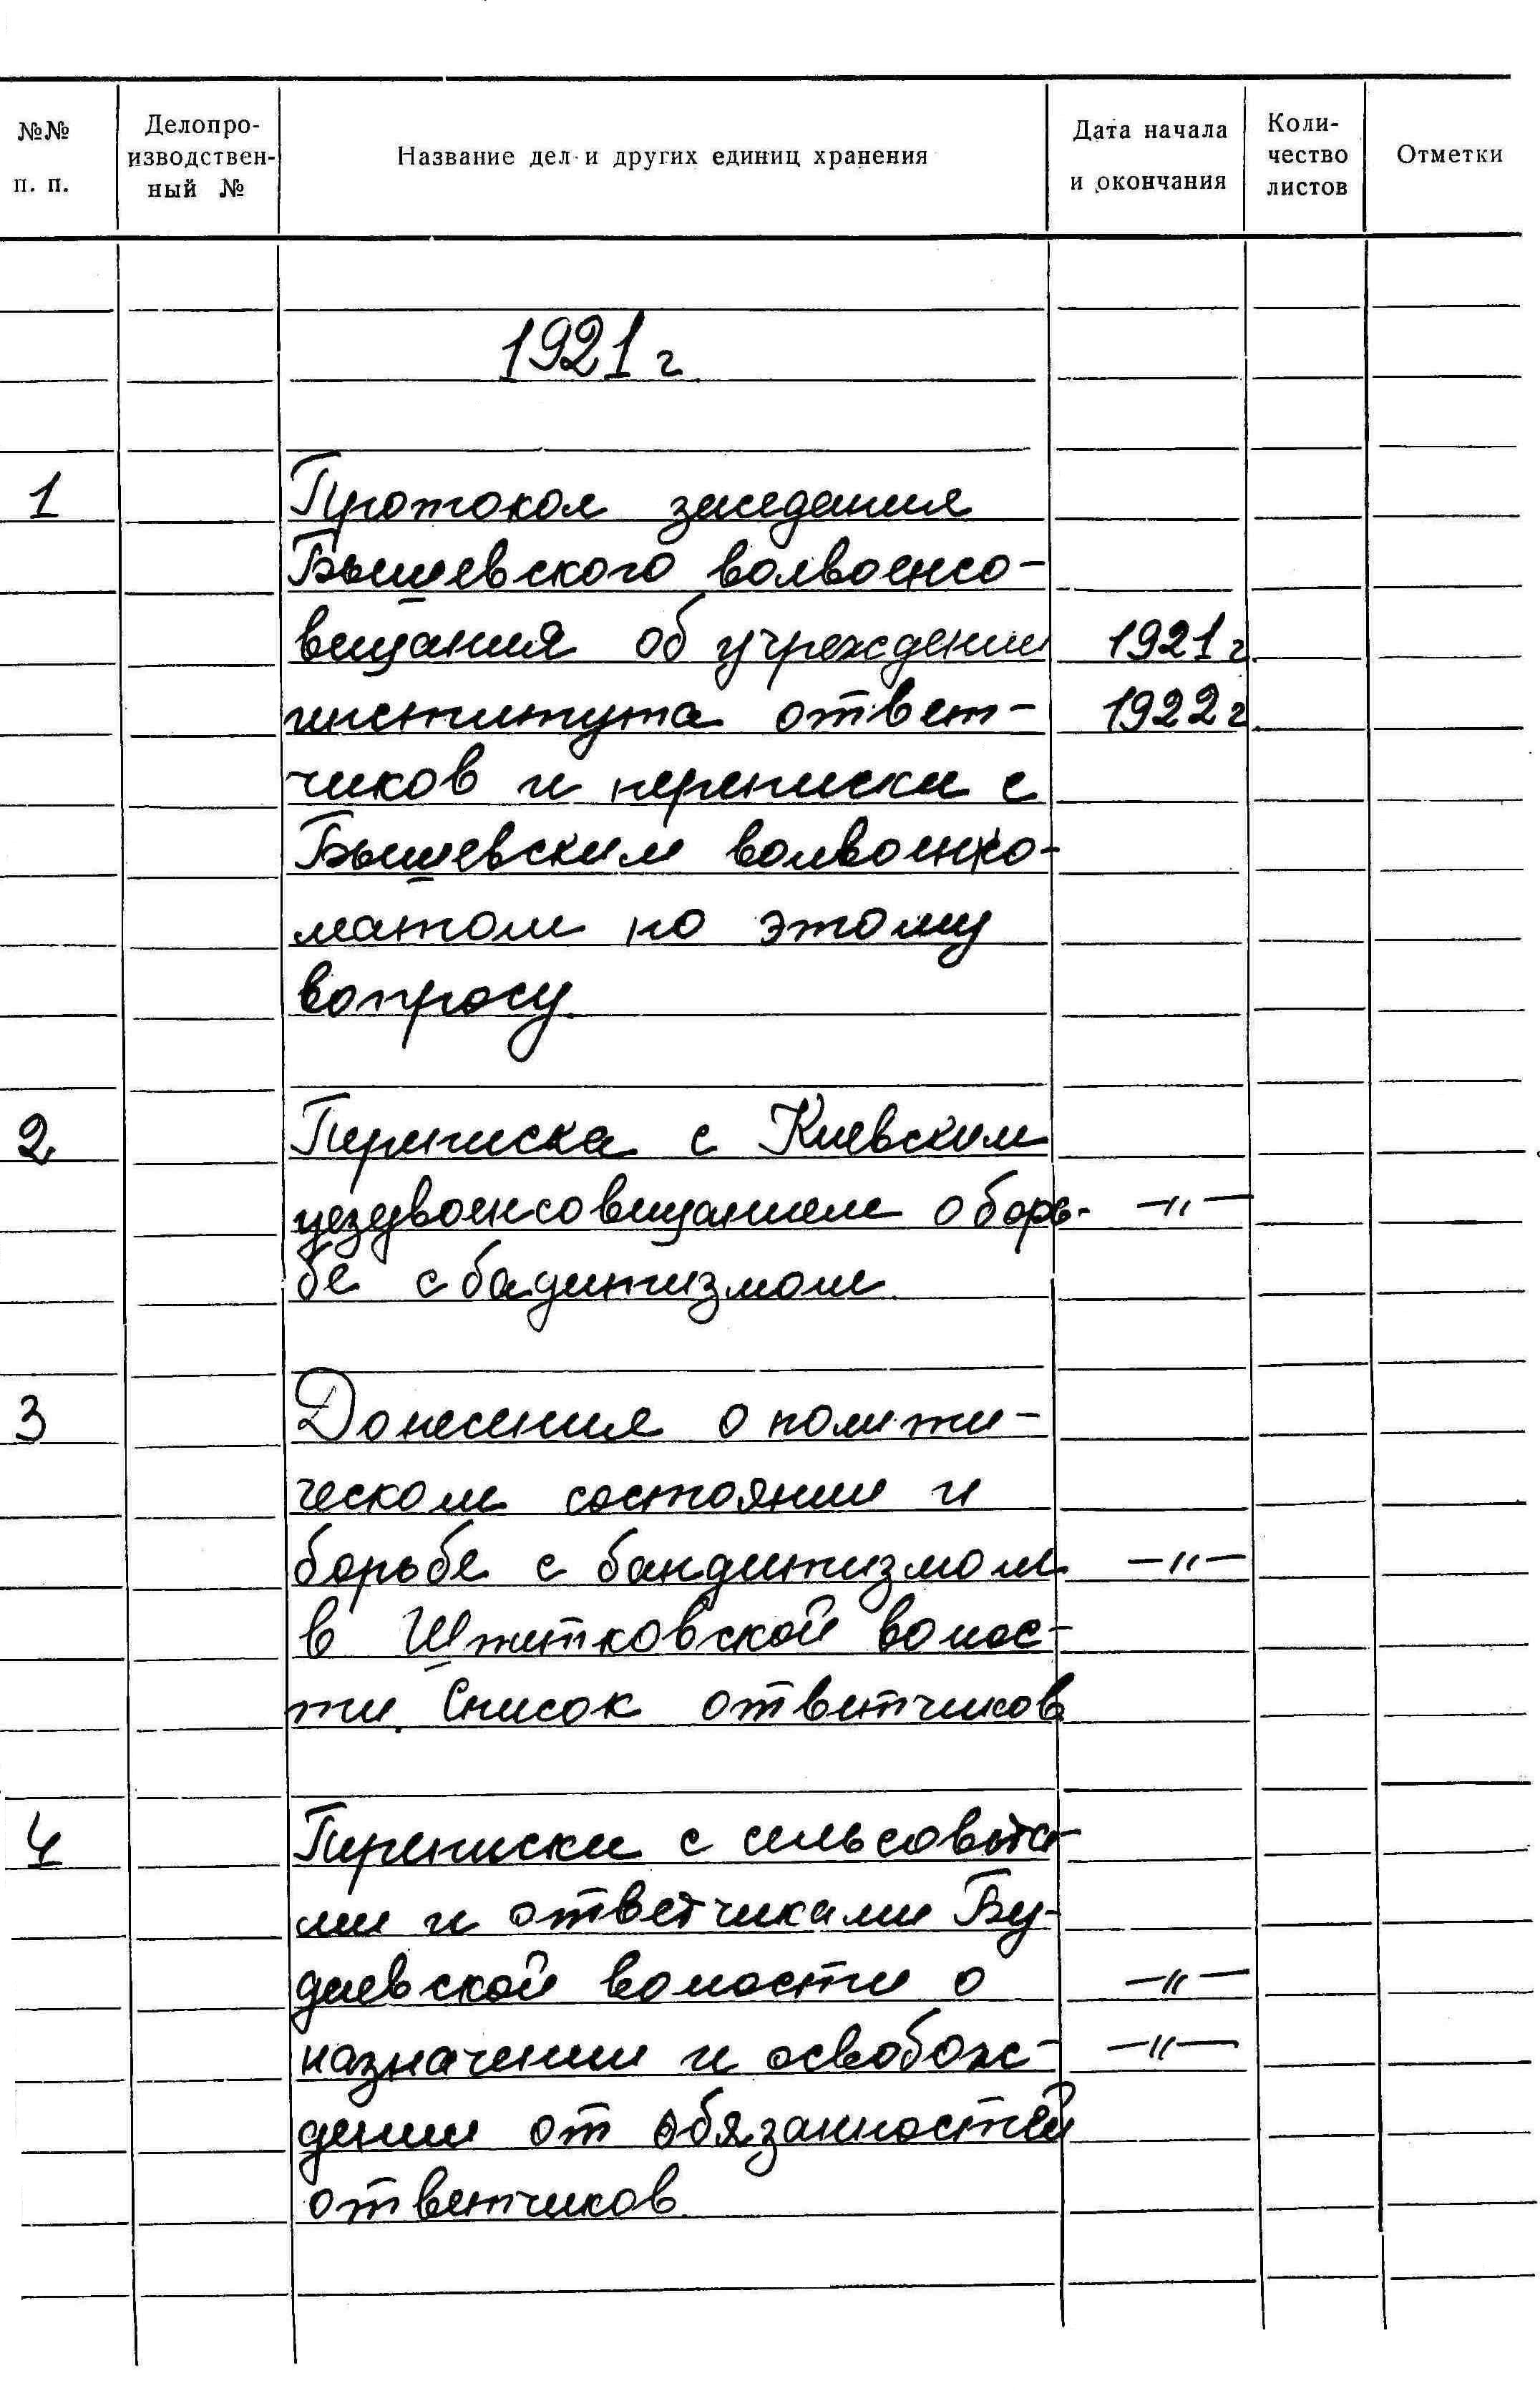 №№ п. п.
Делопро-
изводствен-
ный №
Название дел и других единиц хранения
Дата начала
и окончания
Коли-
чество
листов
Отметки
1921 г
1 Протокол заседания
Бышевского волвоенсо-
вещания об учреждении 1921 г
института ответ- 1922 г
чиков и переписки с
Бышевским волвоенко-
матом по этому
вопросу.
2 Переписка с Киевским
уездвоенсовещанием о борь- —"—
бе с бадитизмом.
3 Донесения о полити-
ческом состоянии и
борьбе с бандитизмом —"—
в Шжитковской волос-
ти. Список ответчиков
4 Переписки с сельсовета-
ми и ответчиками Бу-
даевской волости о —"—
назначении и освобож- —"—
дении от обязанностей
ответчиков.